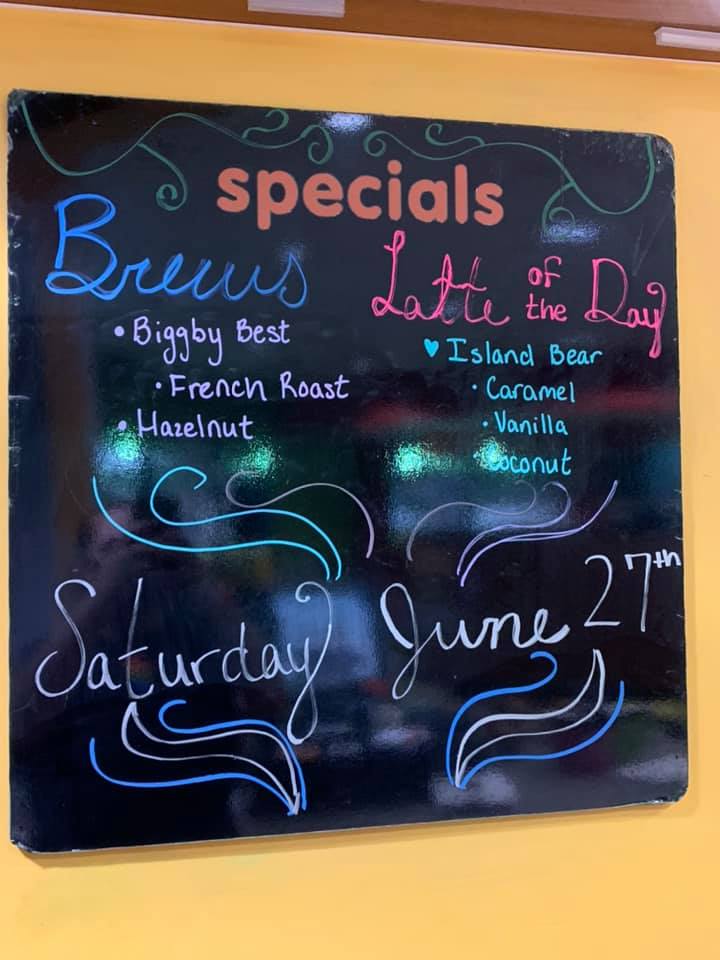 specials
Brews
• Biggby Best
• French Roast
• Hazelnut
Latte of the Day
♥ Island Bear
• Caramel
• Vanilla
• Coconut
Saturday June 27th